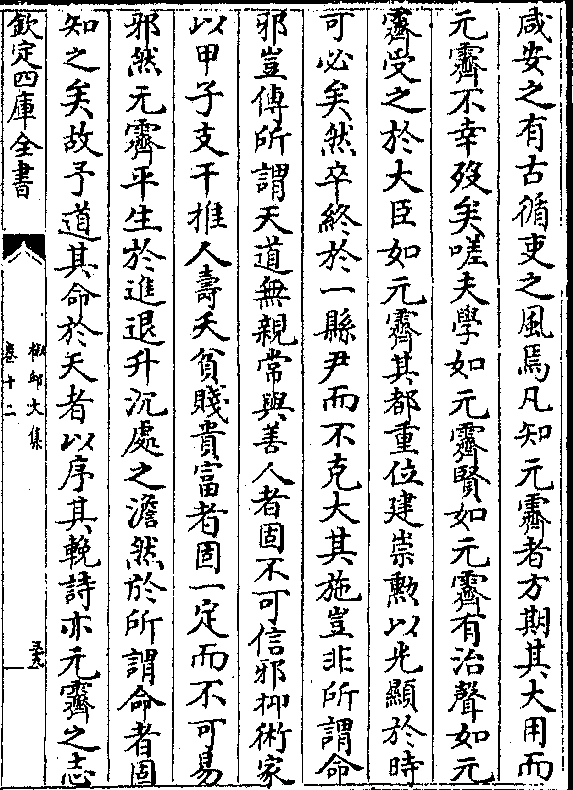 咸安之有古循吏之風焉凡知元霽者方期其大用而
元霽不幸歿矣嗟夫學如元霽賢如元霽有治聲如元
霽受之於大臣如元霽其都重位建崇勲以光顯於時
可必矣然卒終於一縣尹而不克大其施豈非所謂命
邪豈傳所謂天道無親常與善人者固不可信邪抑術家
以甲子支干推人壽夭貧賤貴富者固一定而不可易
邪然元霽平生於進退升沉處之澹然於所謂命者固
知之矣故予道其命於天者以序其輓詩亦元霽之志
欽定四庫全書
文集
卷十二